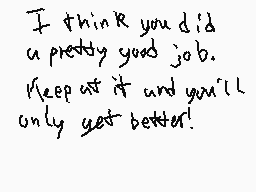 I think you did
a pretty good job.
Keep at it and you'll
only get better!